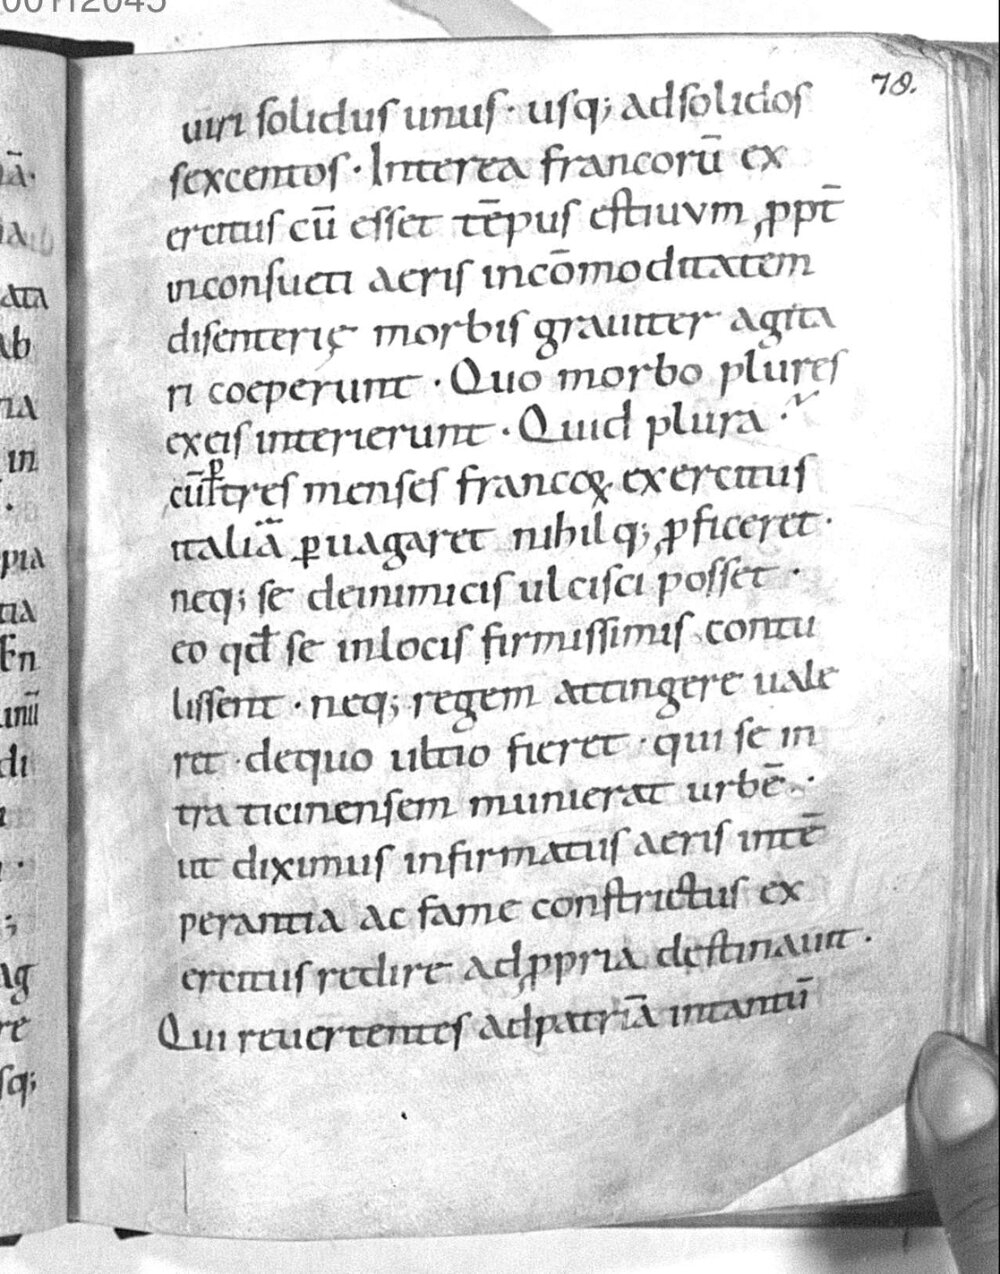 00112045
78.
uiri solidus unus · usq; adsolidos
sexcentos · Interea francorū ex
ercitus cū esset tēpus estiuum ꝓpt̄
inconsueti aeris incōmoditatem
disenterię morbis grauiter agita
ri coeperunt · Quo morbo plures
exeis interierunt · Quid plura ·
tres menses francoꝝ exercitus
italiā ꝑuagaret nihilq; ꝓficeret ·
neq; se deinimicis ulcisci posset ·
eo qđ se inlocis firmissimis contu
lissent · neq; regem attingere uale
ret · dequo ultio fieret · qui se in
tra ticinensem munierat urbē ·
ut diximus infirmatus aeris intē
perantia ac fame constrictus ex
ercitus redire adꝓpria destinauit ·
Qui reuertentes adpatriā intantū